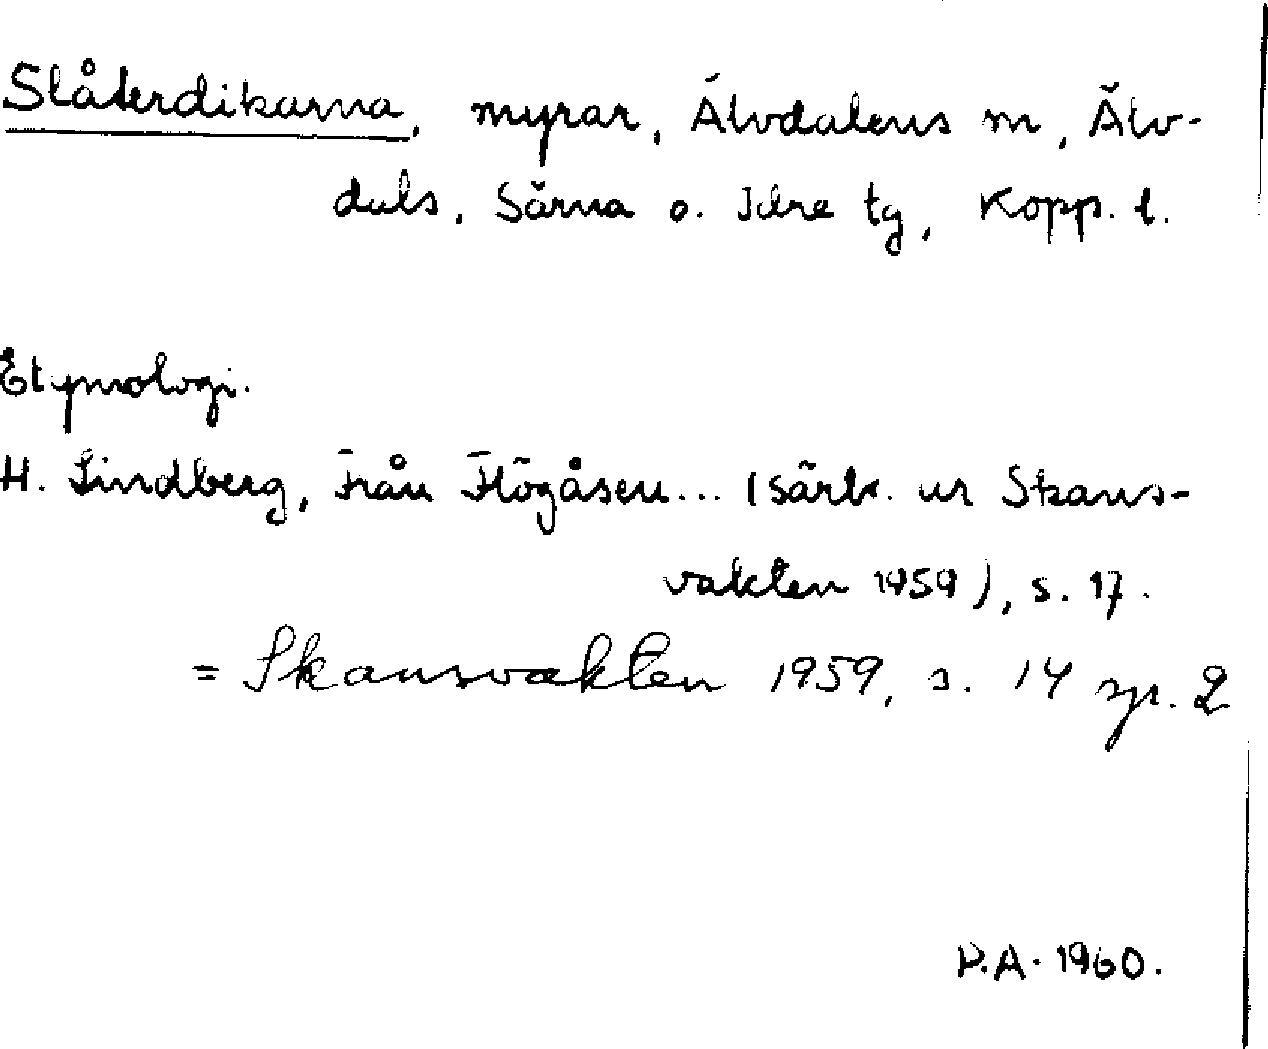 Slåterdikarna, myrar, Älvdalens sn, Älv-
dals, Särna o. Idre tg, Kopp. l.
Etymologi.
H. Lindberg, Från Högåsen... (särtr. ur Skans-
vakten 1959), s. 17.
= Skansvakten 1959, s. 14 sp. 2
P.A. 1960.